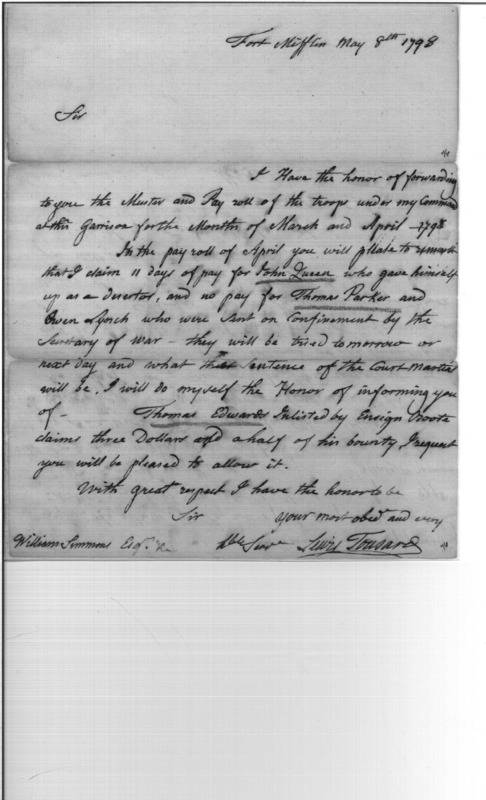 Fort Mifflin May 8th 1798
Sir
I Have the honor of forwarding
to you the Muster and Pay roll of the troops under my Command
at this Garrison for the Months of March and April - 1798
In the pay roll of April you will please to remark
that I claim 11 days of pay for John Queen who gave himself
up as a desertor, and no pay for Thomas Parker and
Owen Lynch who were sent on Confinement by the
Secretary of war - they will be tried tomorrow or
next day and what the Sentence of the Court martial
will be, I will do myself the Honor of informing you
of - Thomas Edwards Inlisted by Ensign
claims three Dollars and a half of his bounty, I request
you will be pleased to allow it.
With great respect I have the honor to be
Sir your most obedt and very
William Simmons Esqr. &c hble Servt Lewis Tousard